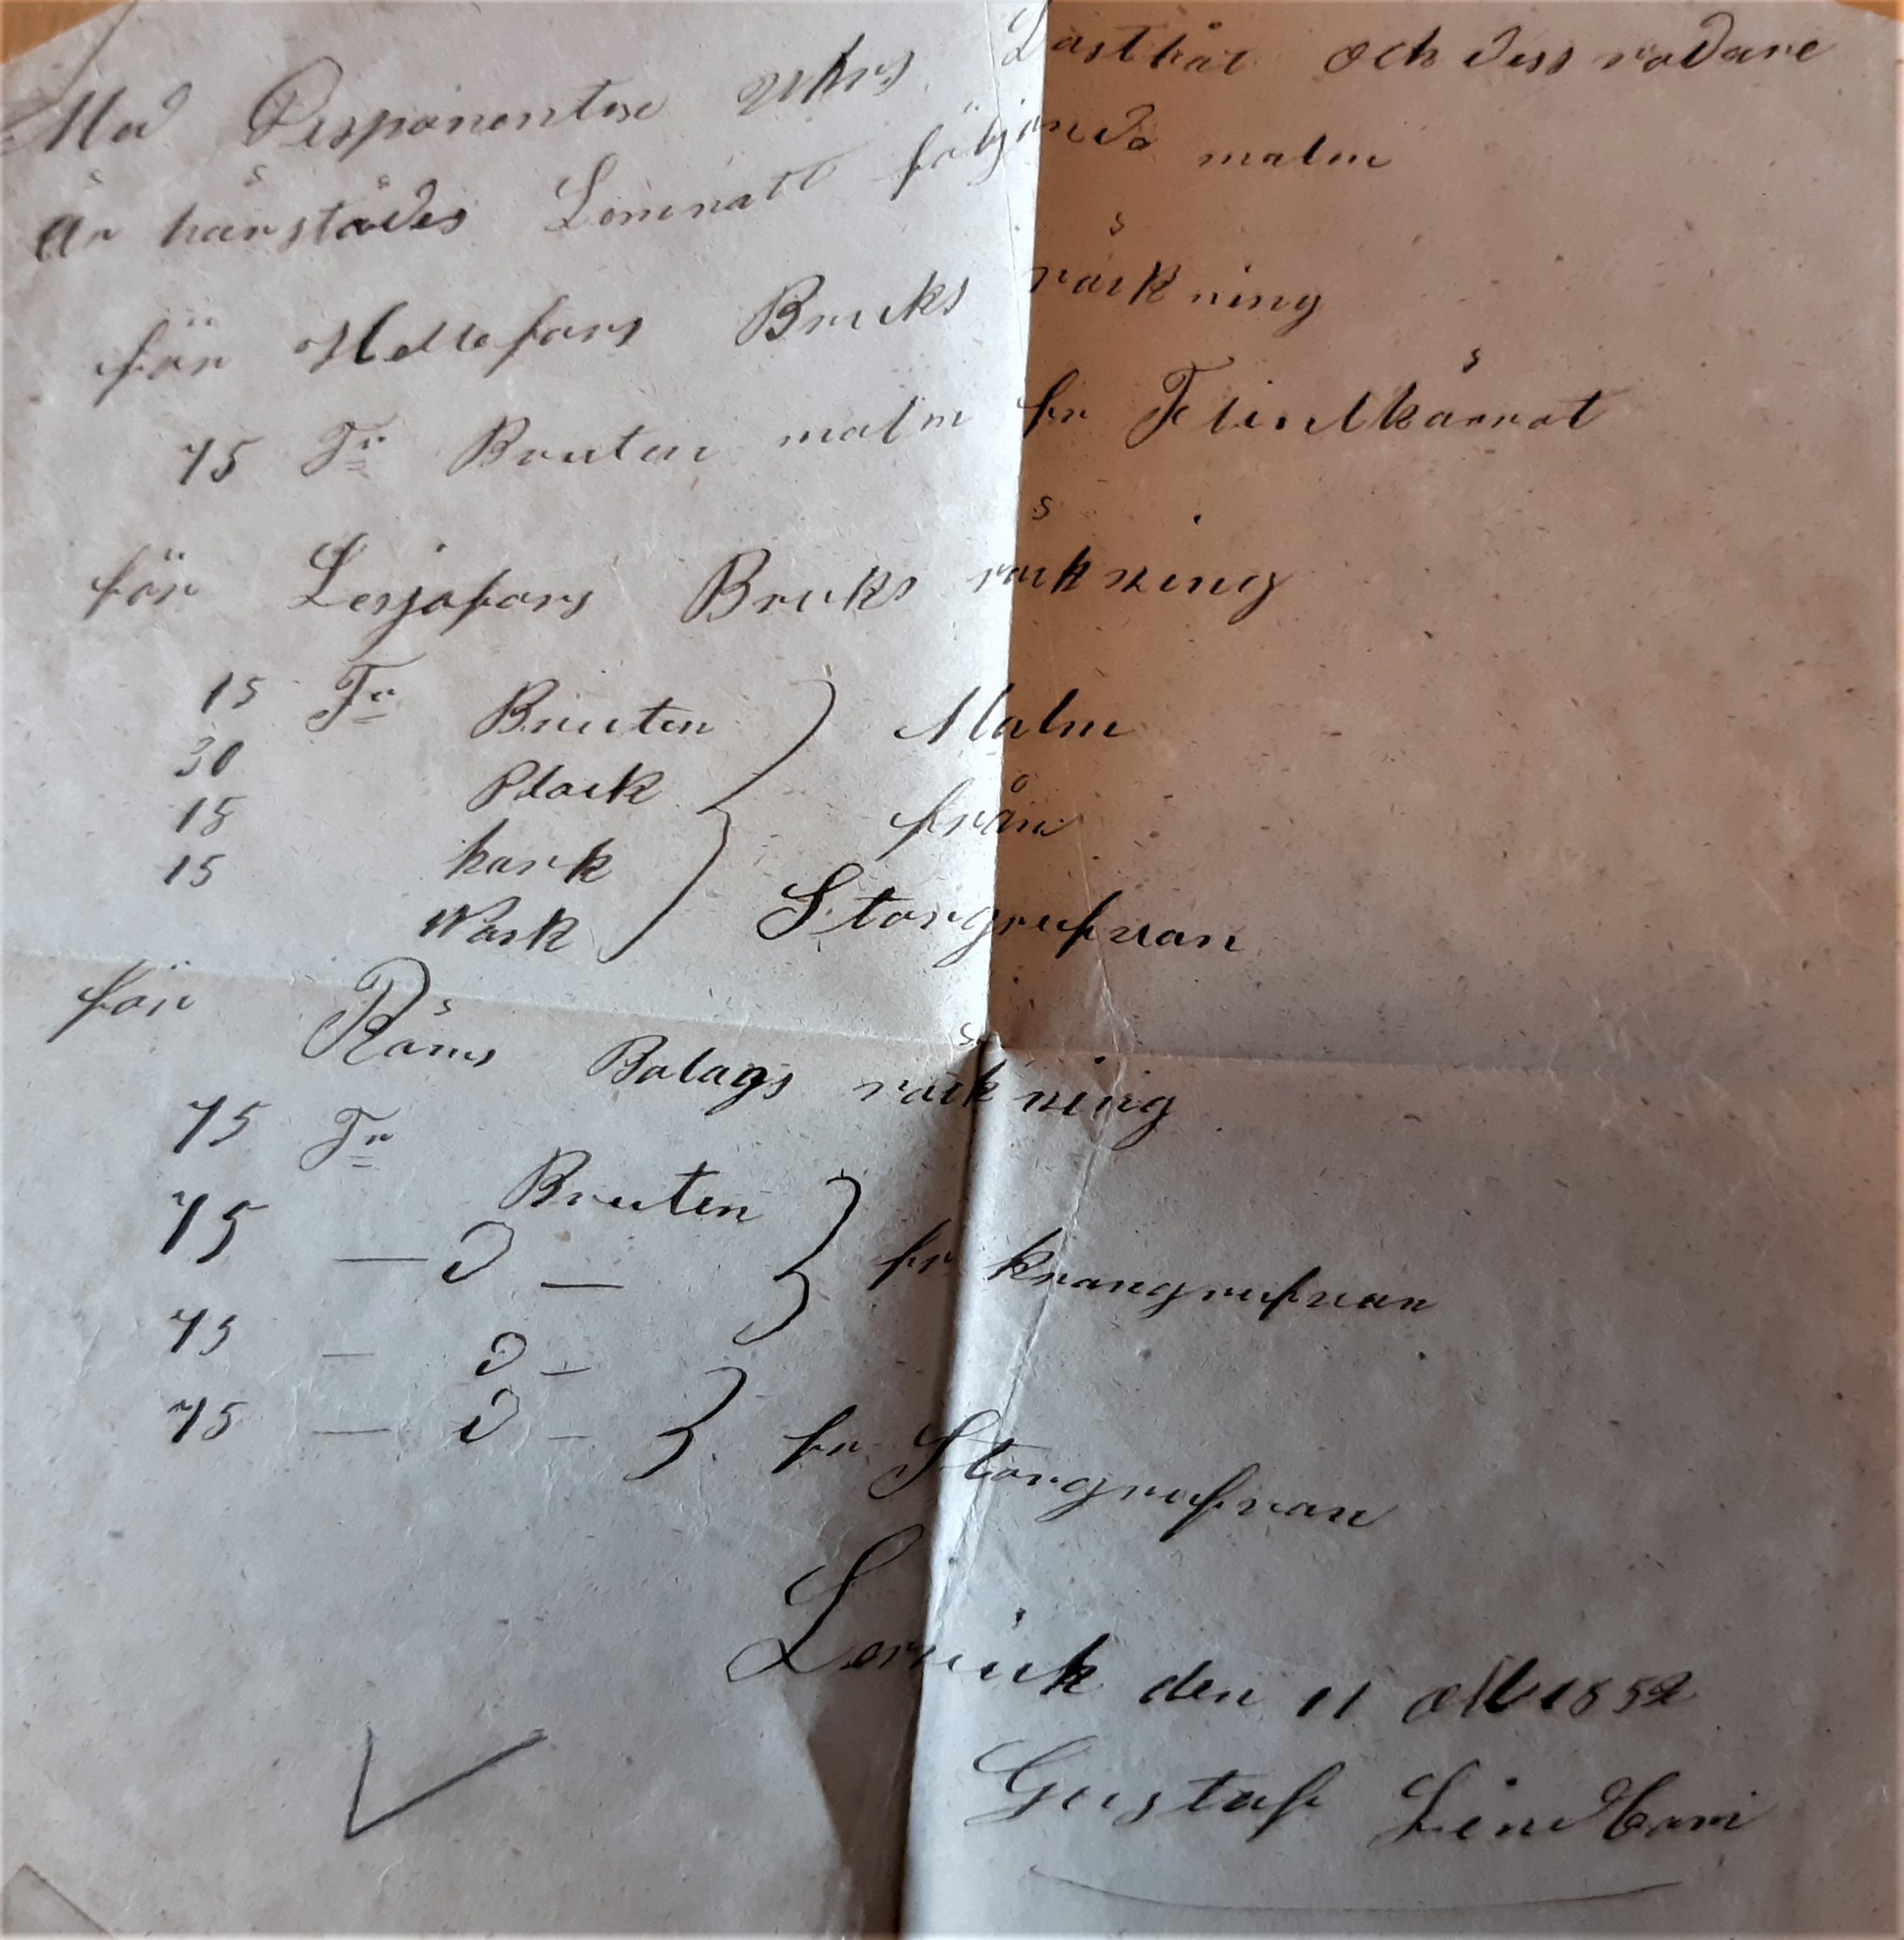 Med Disponenten Uhrs Lastbåt och dess rodare
Är härstädes Lemnatt föhjande malm
för Hellefors Bruks räkning
75 Tr Bruten malm fr Flinkkärret
för Lesjofors Bruks räkning
15 Tr Bruten
30 Plock
15 hark
15 Wask
Malm
från
Storgrufvan
för Räms Bolags räkning
75 Tr Bruten
75 — D —
fr krangrufvan
75 — D —
75 — D —
fr Storgrufvan
Lervik den 11 1852
Gustaf